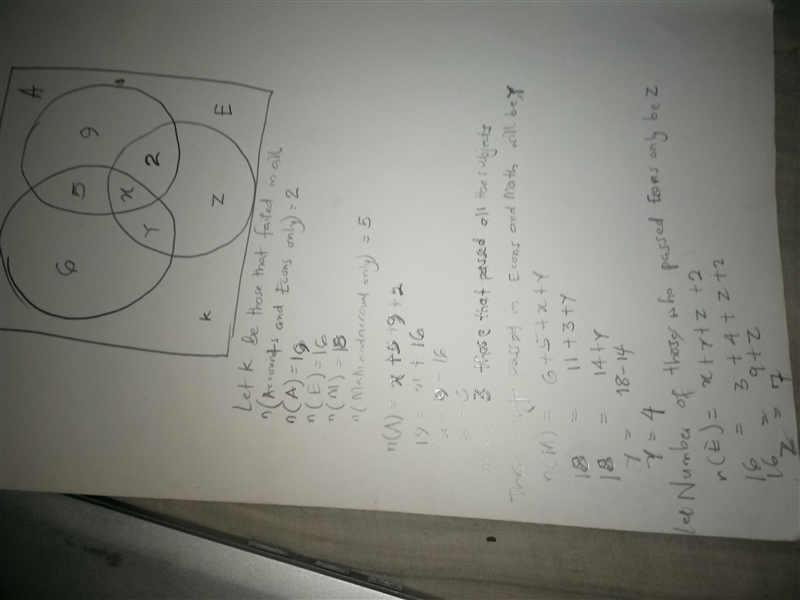 A
9
5
2
x
6
Y
Z
E
K
Let K be those that failed in all
n(Accounts and Econs only) = 2
n(A) = 19
n(E) = 16
n(M) = 18
n(Math and account only) = 5
n(A) = x + 5 + 9 + 2
19 = x + 16
x = 19 - 16
3 those that passed all the subjects
passed in Econs and Math will be Y
n(M) = 6 + 5 + x + Y
18 = 11 + 3 + Y
18 = 14 + Y
Y = 18 - 14
Y = 4
Let Number of those who passed Econs only be Z
n(E) = x + Y + Z + 2
16 = 3 + 4 + Z + 2
16 = 9 + Z
Z = 7